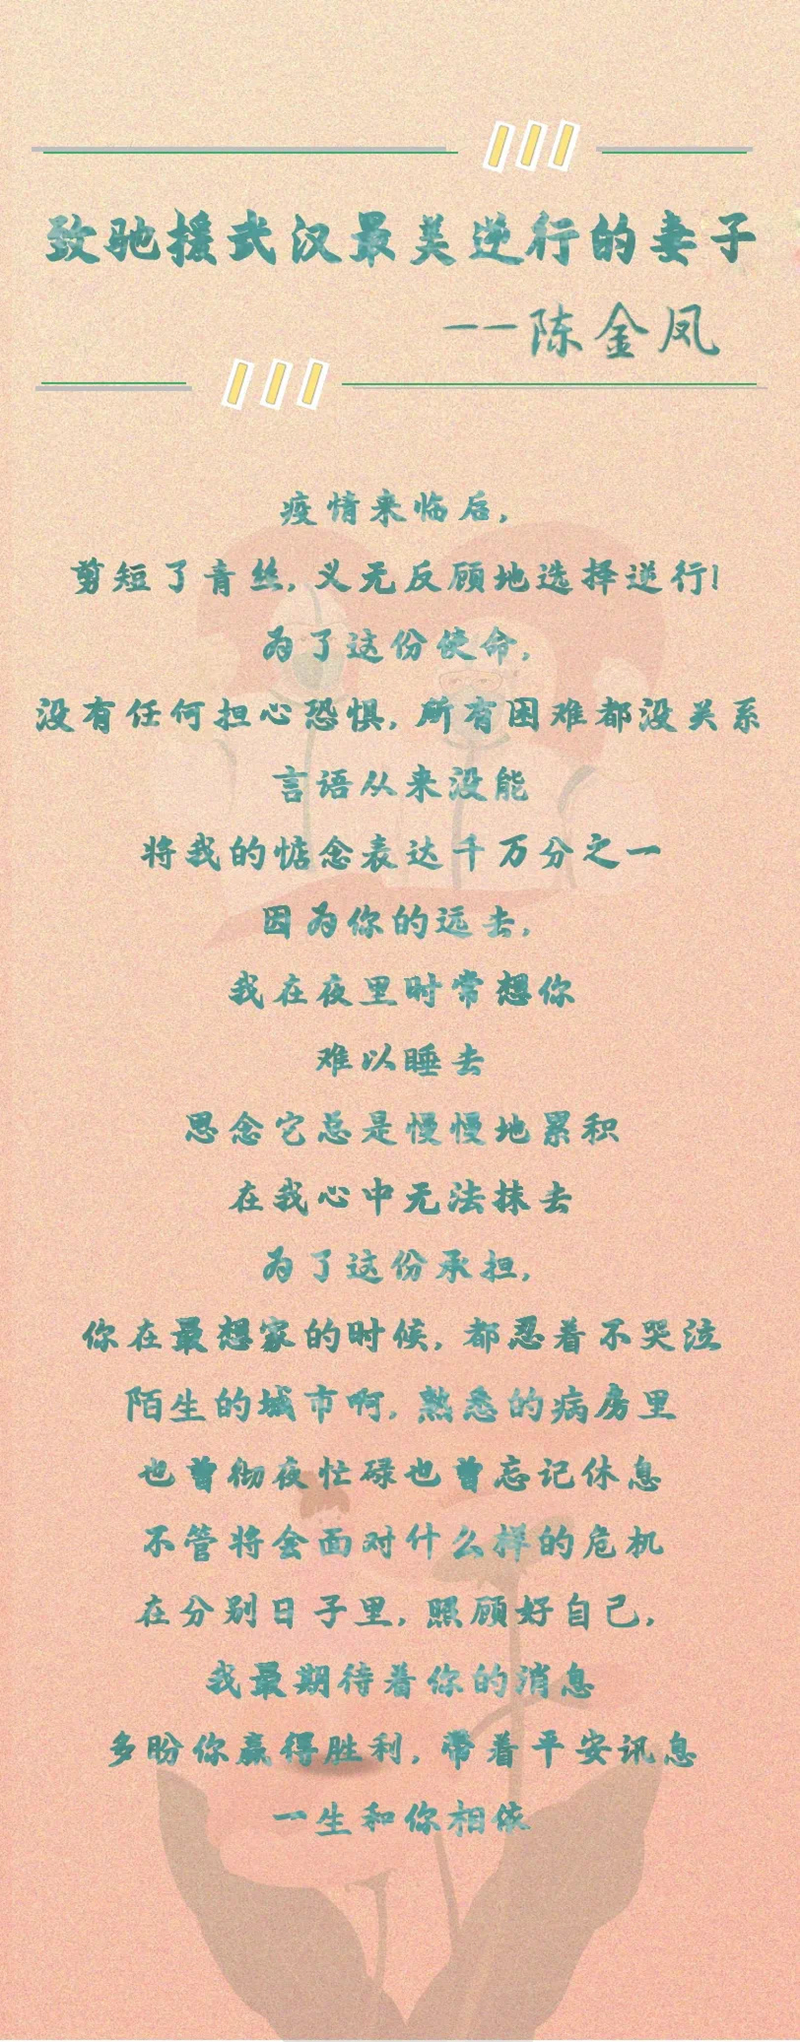 致驰援武汉最美逆行的妻子
--陈金凤
疫情来临后,
剪短了青丝,义无反顾地选择逆行!
为了这份使命,
没有任何担心恐惧,所有困难都没关系
言语从来没能
将我的惦念表达千万分之一
因为你的远去,
我在夜里时常想你
难以睡去
思念它总是慢慢地累积
在我心中无法抹去
为了这份承担,
你在最想家的时候,都忍着不哭泣
陌生的城市啊,熟悉的病房里
也曾彻夜忙碌也曾忘记休息
不管将会面对什么样的危机
在分别日子里,照顾好自己,
我最期待着你的消息
多盼你赢得胜利,带着平安讯息
一生和你相依